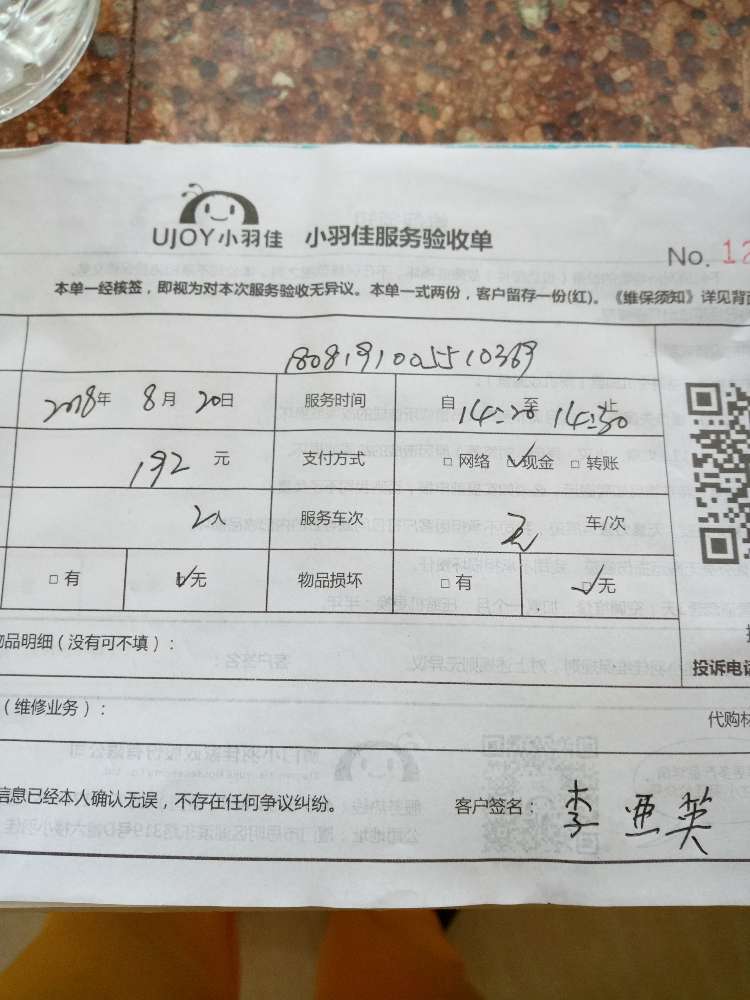 UJOY小羽佳 小羽佳服务验收单
No. 12
本单一经核签，即视为对本次服务验收无异议。本单一式两份，客户留存一份(红)。《维保须知》详见背
1808191005510369
2018年 8月 20日 服务时间 自14:20至14:50止
192元 支付方式 □网络 ☑现金 □转账
2人 服务车次 无 车/次
□有 ☑无 物品损坏 □有 ☑无
物品明细（没有可不填）：
投诉电话
（维修业务）：
代购材
信息已经本人确认无误，不存在任何争议纠纷。 客户签名：李亚英